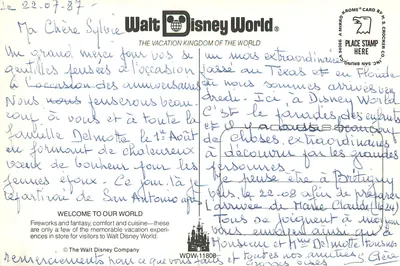 Le 22-07-87-
Ma Chère Sylvie
Un grand merci pour vos si
gentilles pensées à l'occasion
à l'occasion des anniversaires
Nous nous penserons beau
coup à vous et à toute la
famille Delmotte le 1er Août
en formant de chaleureux
vœux de bonheur pour les
jeunes époux - Ce jour-là je
repartirai de San Antonio ap
un mois extraordinaire
passé au Texas et en Floride
où nous sommes arrivés ven
dredi - Ici, à Disney World
C'est le paradis des enfants
et il y a aussi beaucoup
de choses extraordinaires
à découvrir par les grandes
personnes
Je pense être à
le 22-08 afin de préparer
l'arrivée de Marie Claude (le 24)
Tous se joignent à moi
vous envoyer ainsi qu'à
Monsieur et Mme Delmotte
remerciements
et toutes nos amitiés
Walt Disney World®
THE VACATION KINGDOM OF THE WORLD
PLACE STAMP HERE
WELCOME TO OUR WORLD
Fireworks and fantasy, comfort and cuisine—these
are only a few of the memorable vacation experi-
ences in store for visitors to Walt Disney World.
© The Walt Disney Company
WDW-11808